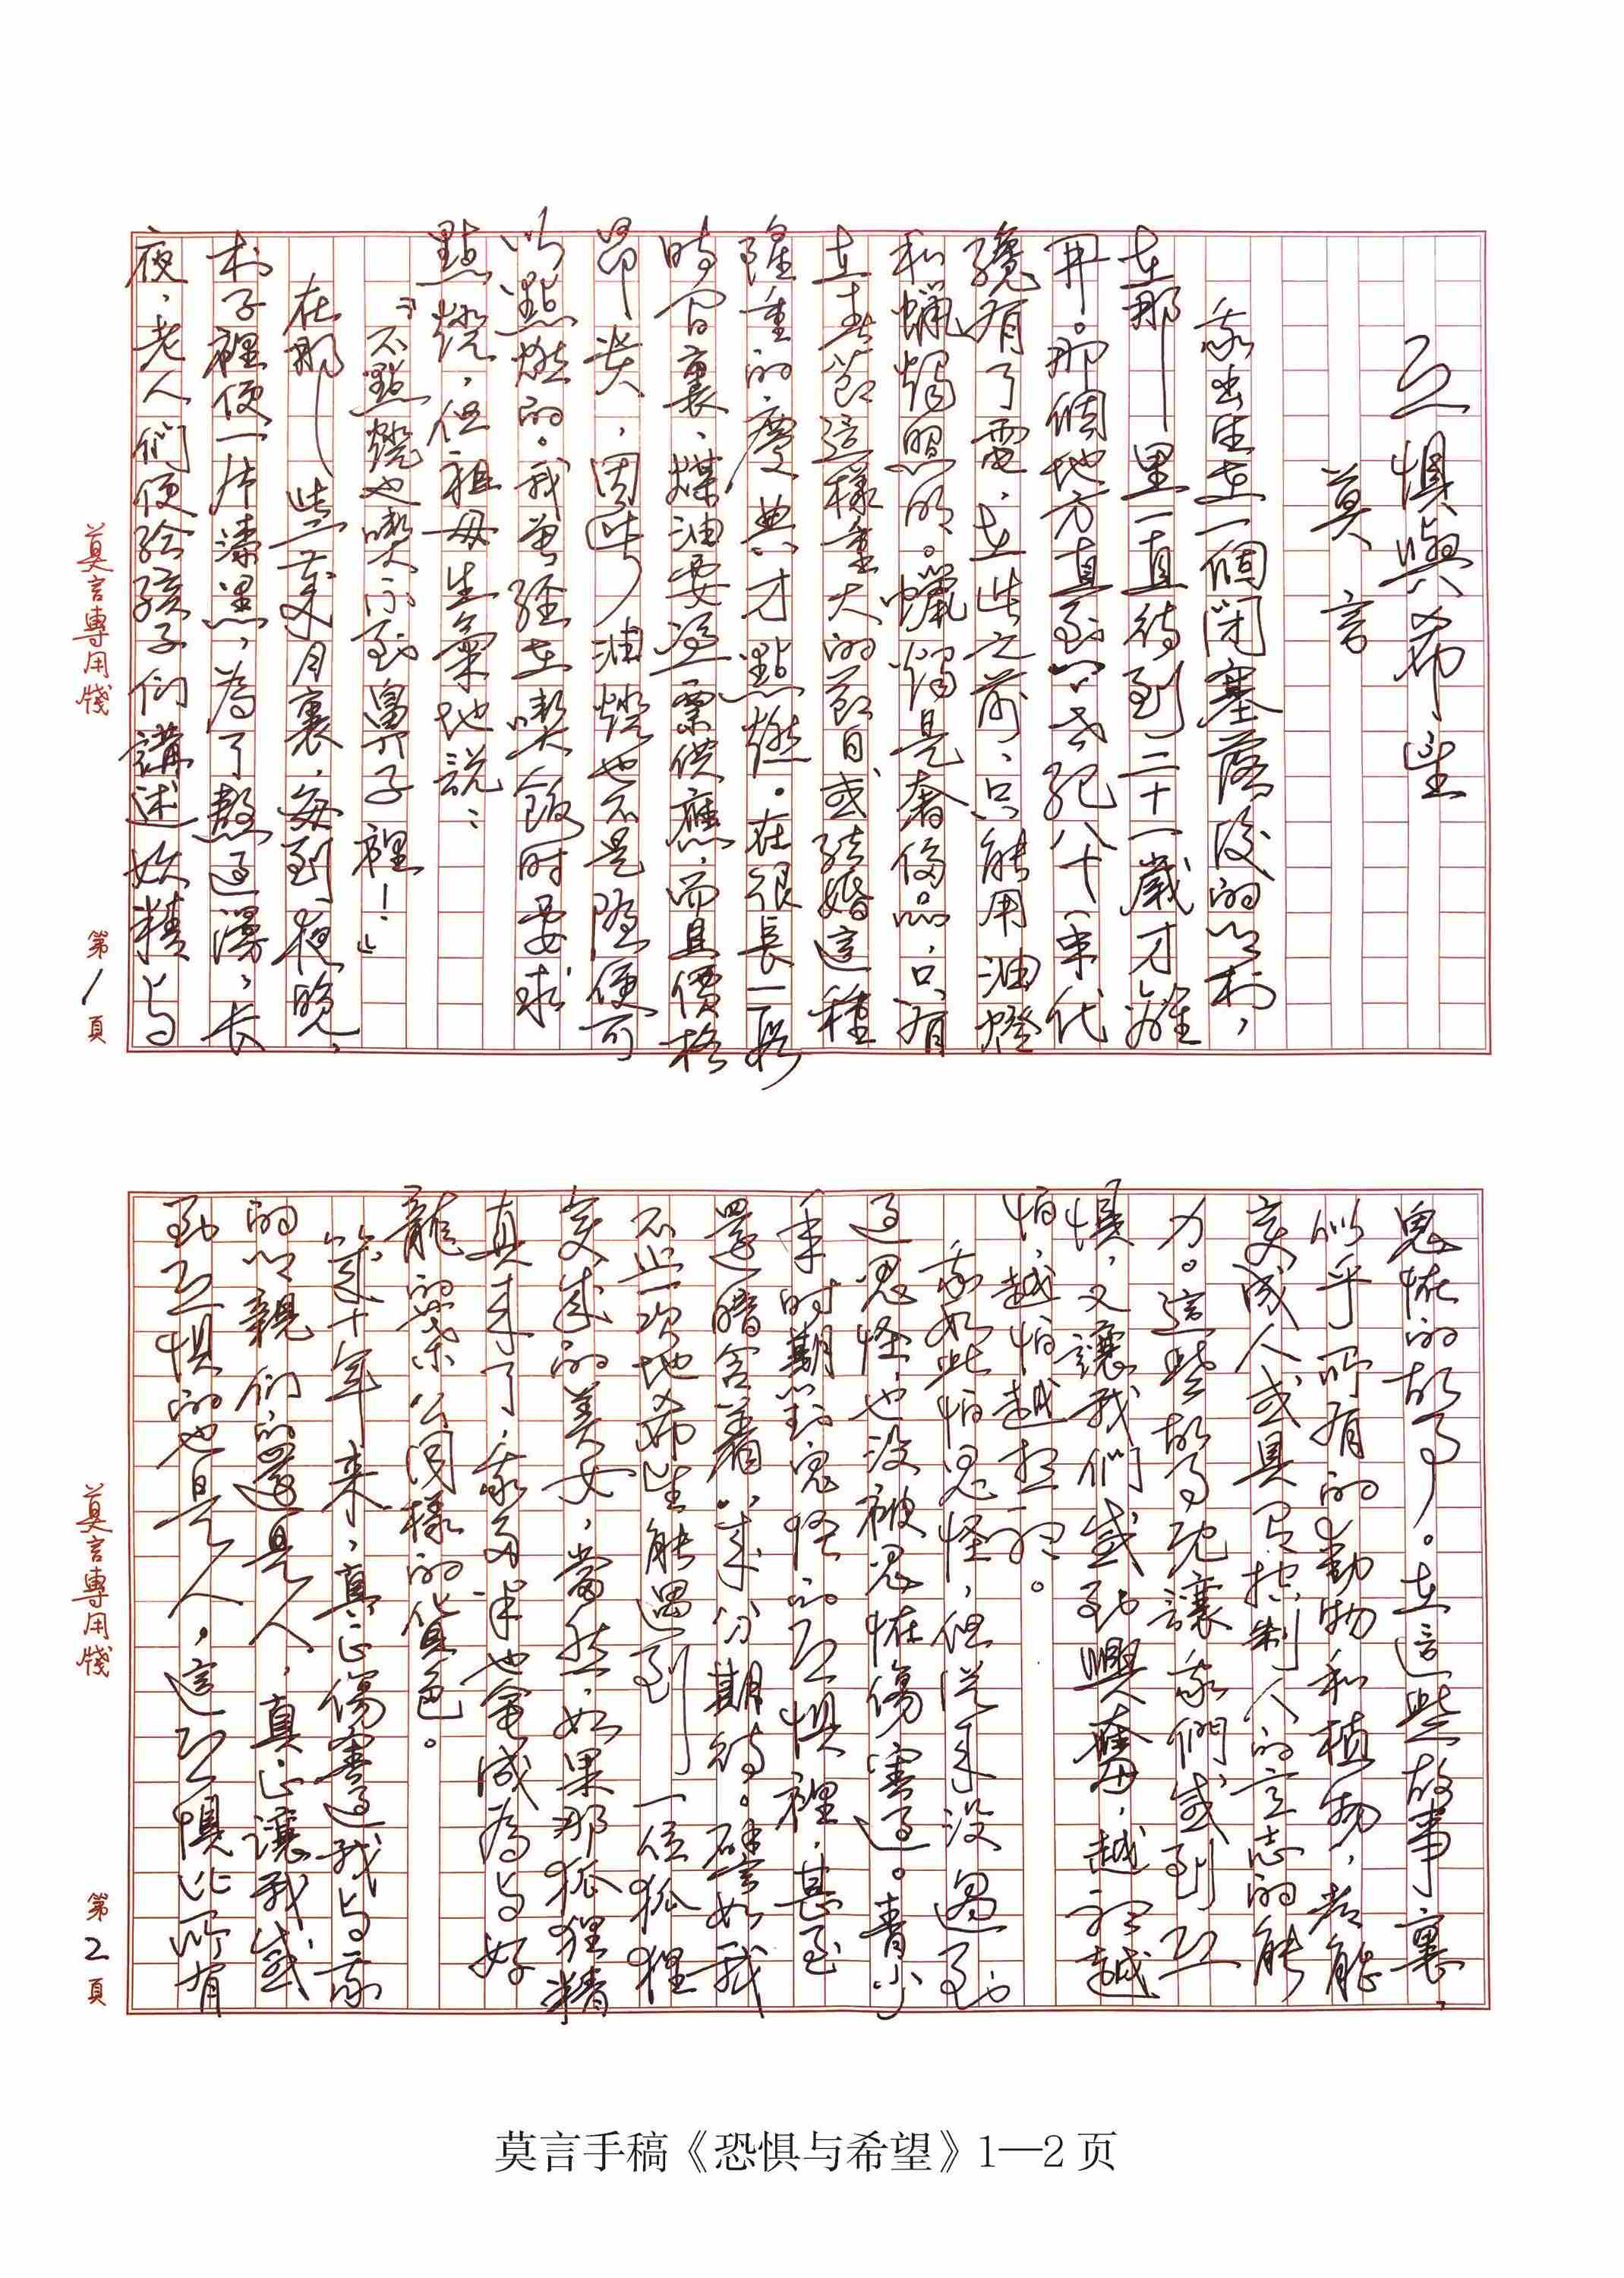 恐懼與希望
莫言
我出生在一個閉塞落後的鄉村，
在那里一直待到二十一歲才離
开。那個地方直到上世纪八十年代
纔有了電，在此之前，只能用油燈
和蠟燭照明。蠟燭是奢侈品，只有
在春節這樣重大的節日或結婚這種
隆重的慶典才點燃。在很長一段
時间裏，煤油要憑票供應，而且價格
昂贵，因此油燈也不是隨便可
以點燃的。我曾經在喫飯时要求
點燈，但祖母生氣地説：
“不點燈也喫不到鼻子裡！”
在那些歲月裏，每到夜晚，
村子裡便一片漆黑，為了熬過漫長
夜，老人們便给孩子们講述妖精与
莫言專用箋
第1頁
鬼怪的故事。在這些故事裏，
似乎所有的動物和植物，都能
变成人或具有控制人的意志的能
力。這些故事既讓我們感到恐
懼，又讓我們感到興奮，越听越
怕，越怕越想听。
我如此怕鬼怪，但從来没遇到
过鬼怪，也没被鬼怪傷害過。青少
年时期對鬼怪的恐惧裡，甚至
還暗含着幾分期待。譬如我
不止一次地希望能遇到一位狐狸
变成的美女，當然，如果那狐狸精
真来了，我多半也會成為与好
龍的葉公同樣的貨色。
幾十年来，真正傷害過我与我
的鄉親们的還是人，真正讓我感
到恐惧的也是人，這恐惧比所有
莫言專用箋
第2頁
莫言手稿《恐惧与希望》1—2页